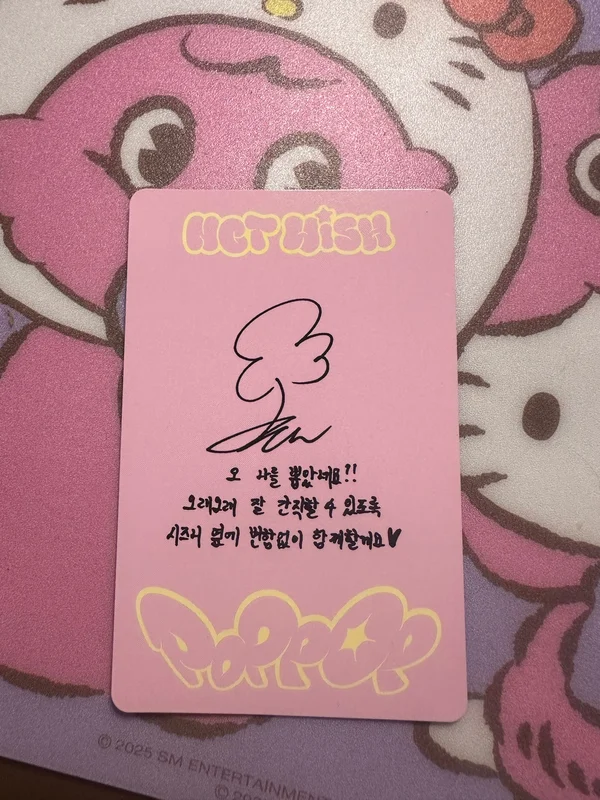 NCT WISH
오 나를 뽑았네요!!
오래오래 잘 간직할 수 있도록
시즈니 옆에 변함없이 함께할게요♥
poppop
© 2025 SM ENTERTAINMENT
© 20